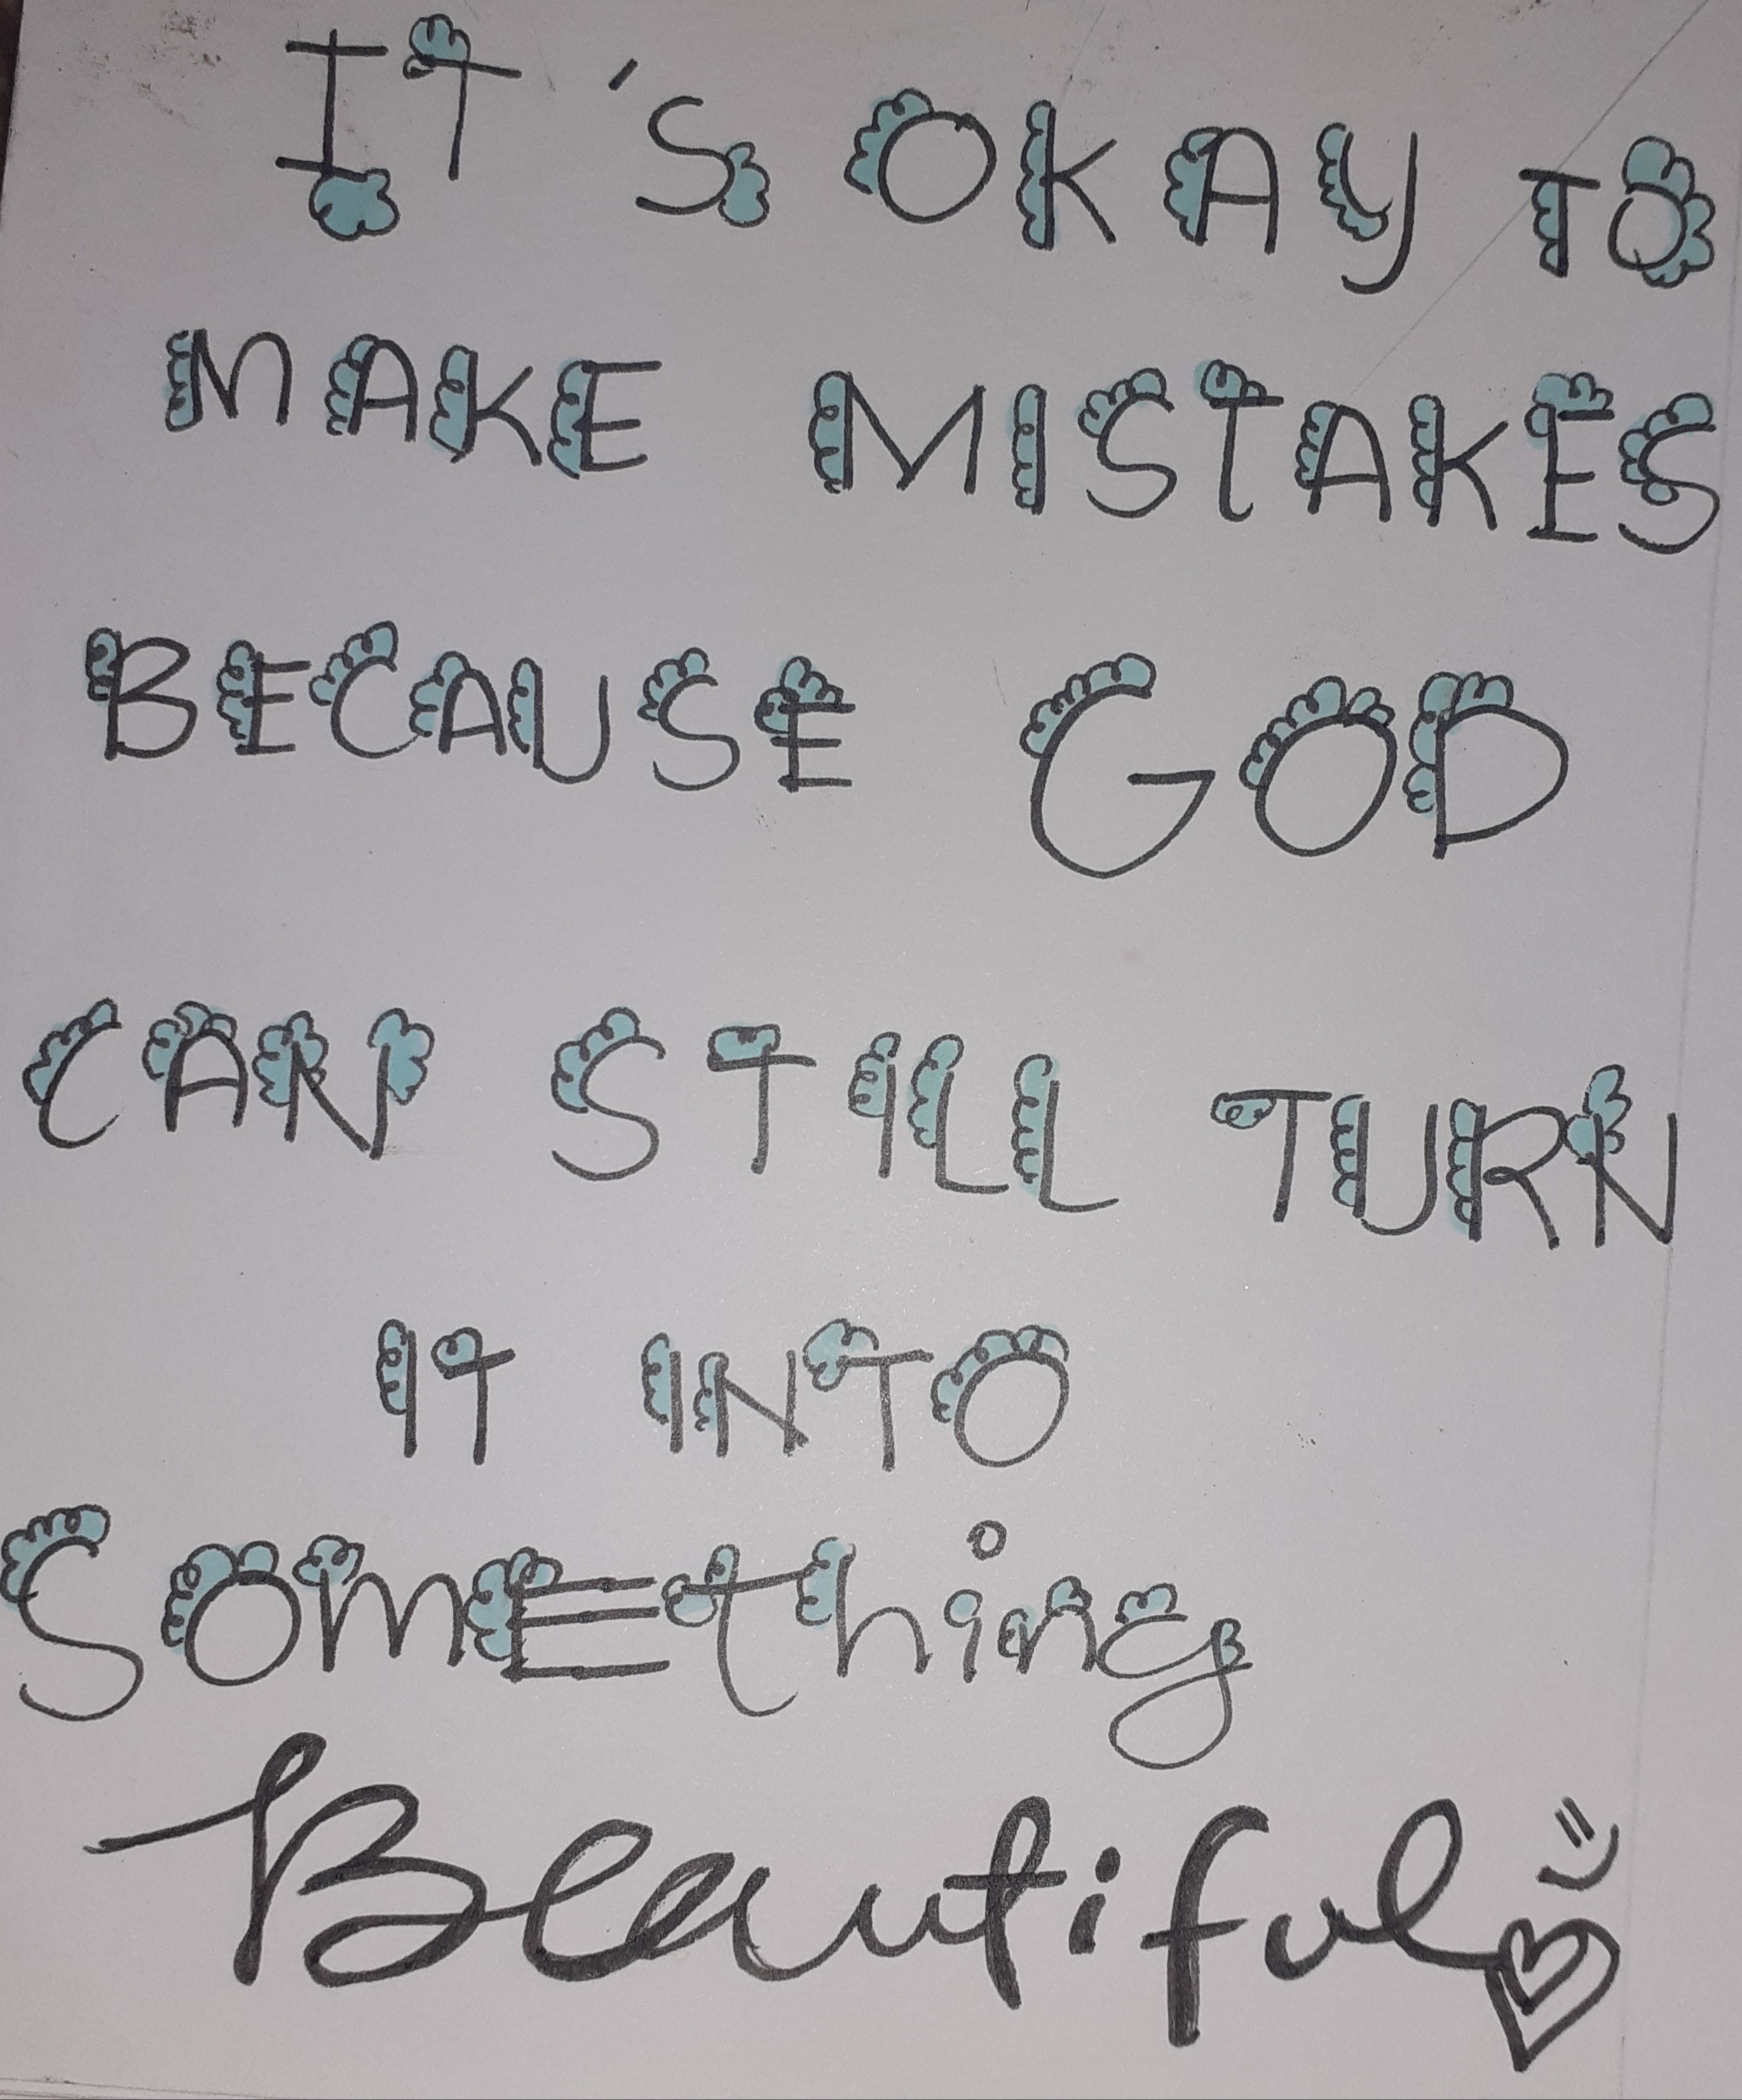 IT'S OKAY TO
MAKE MISTAKES
BECAUSE GOD
CAN STILL TURN
IT INTO
SOMEthing
Beautiful